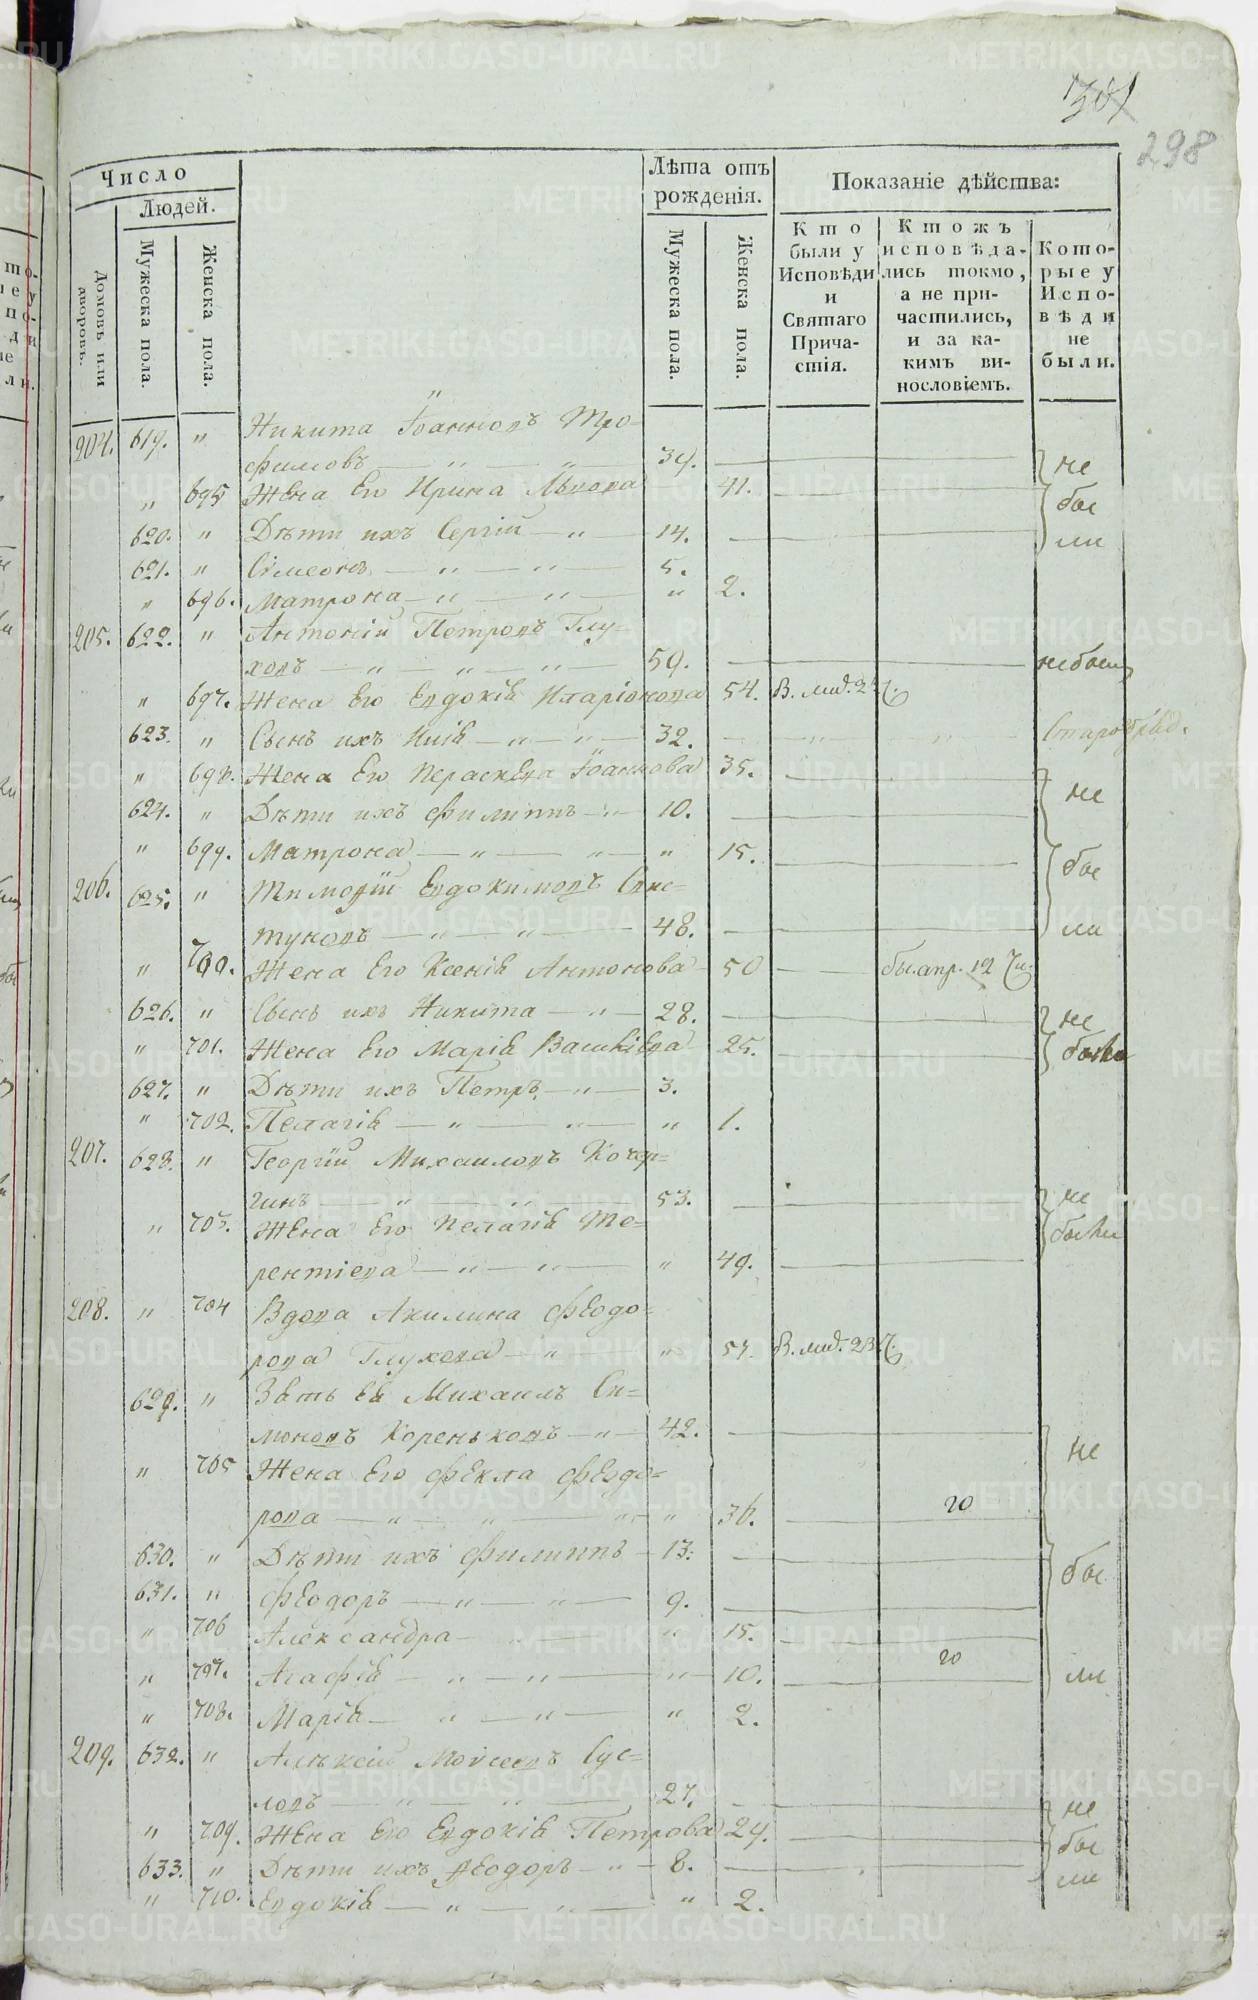 301
298
Число
Людей.
Домовъ или дворовъ.
Мужеска пола.
Женска пола.
Лѣта отъ рожденія.
Мужеска пола.
Женска пола.
Показаніе дѣйства:
Кто были у Исповѣди и Святаго Причастія.
Кто жъ исповѣдались токмо, а не причастились, и за какимъ винословіемъ.
Которые у Исповѣди не были.
204. 619. " Никита Іоанновъ Тро=
фимовъ — " — " — 34. не
" 695 Жена Его Ирина Львова 41. бы
620. " Дѣти ихъ Сергій — " — 14. ли
621. " Сімеонъ — " — " — 5.
" 696. Матрона — " — " — " 2.
205. 622. " Антоній Петровъ Глу=
ховъ — " — " — " — 59. небыл
" 697. Жена Его Евдокія Иларіонова 54.
623. " Сынъ ихъ — " — " — 32. " "
" 698. Жена Его Параскева Іоаннова 35.
624. " Дѣти ихъ Филиппъ — " — 10. не
" 699. Матрона — " — " — " 15.
206. 625. " Тимоѳій Евдокимовъ Свис= бы
туновъ — " — " — 48. ли
" 700. Жена Его Ксенія Антонова 50 бы. апр. 12 Чи.
626. " Сынъ ихъ Никита — " — 28. не
" 701. Жена Его Марія 25. были
627. " Дѣти ихъ Петръ — " — 3.
" 702. Пелагія — " — " — " 1.
207. 628. " Георгій Михаиловъ Кочер=
гинъ " " 53. не
" 703. Жена Его Пелагія Те= были
рентіева — " — " — " 49.
208. " 704 Вдова Акилина Ѳеодо=
рова Глухова — " — " 57.
629. " Зять Ея Михаилъ Си=
моновъ Кореньковъ — " — 42.
" 705 Жена Его Ѳекла Ѳеодо= не
рова — " — " — " — " 36. 20
630. " Дѣти ихъ Филиппъ — 13. бы
631. " Ѳеодоръ — " — " — 9.
" 706 Александра — " — " 15.
" 707. Агафія — " — " — " 10. 20 ли
" 708. Марія — " — " — " 2.
209. 632. " Алексій Моисеевъ Сус=
ловъ — " — " — 27. не
" 709. Жена Его Евдокія Петрова 24. бы
633. " Дѣти ихъ Ѳеодоръ — " — 8. ли
" 710. Евдокія — " — " — " 2.
METRIKI.GASO-URAL.RU